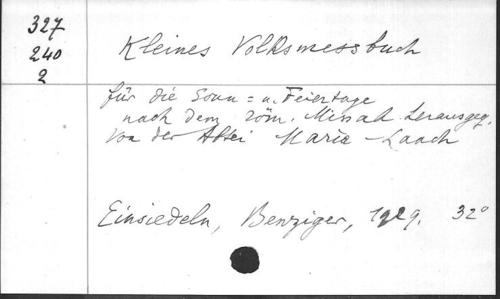 327
240
2
Kleines Volksmessbuch
für die Sonn= u. Feiertage
nach dem röm. Missale herausgeg.
von der Abtei Maria-Laach
Einsiedeln, Benziger, 1929. 32°